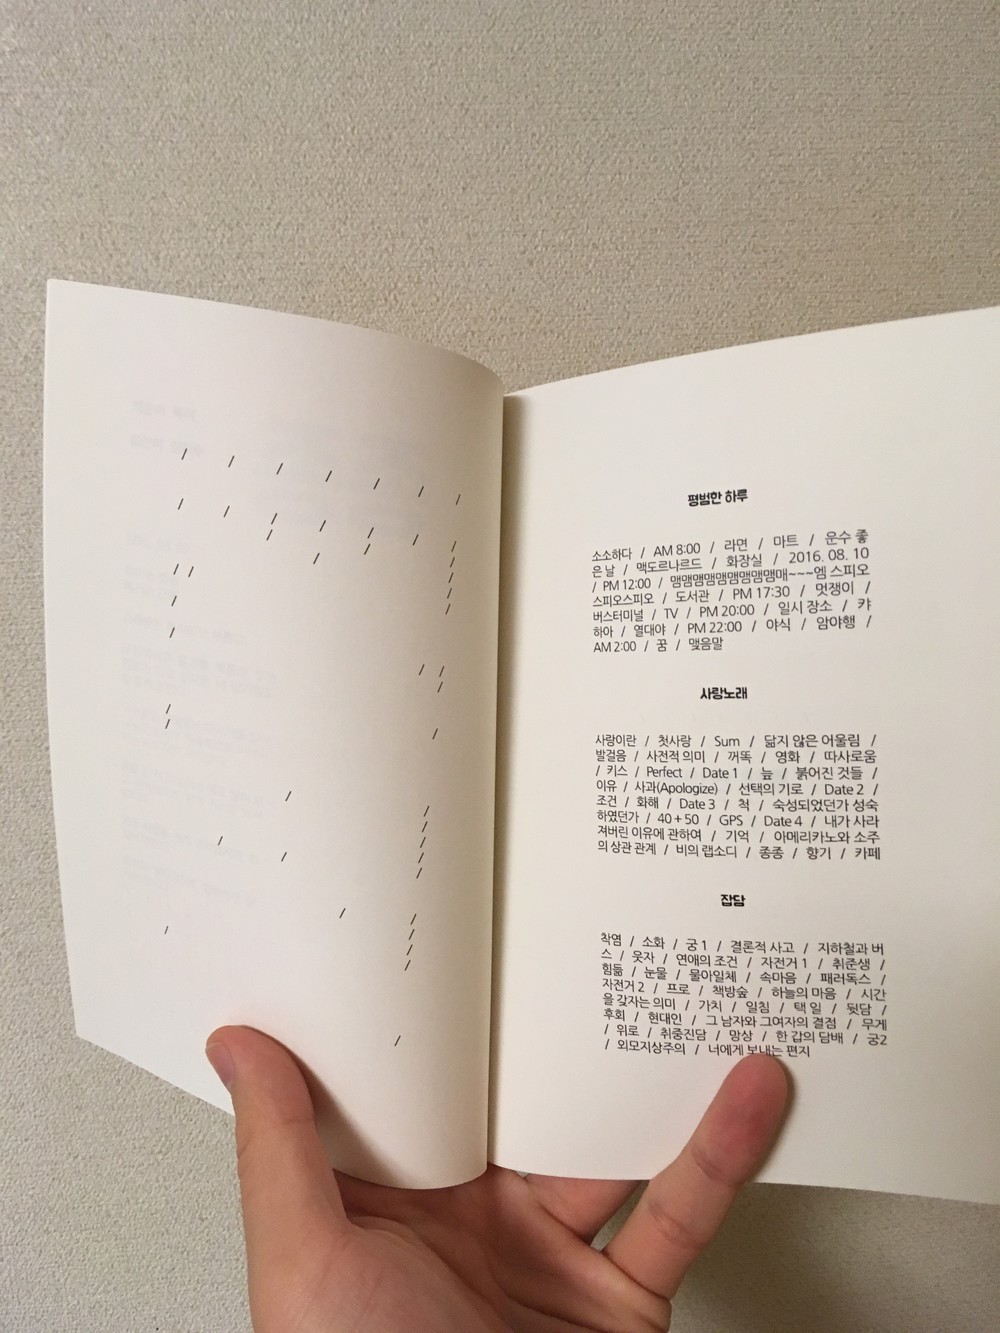 / / / / / / /
/ / / / / / /
/ / /
/ /
/ / /
/
/ /
/
/ /
/
/
/
/
/
/
/
/ /
/
/
/ /
/
/ /
/
/
/
/
평범한 하루
소소하다 / AM 8:00 / 라면 / 마트 / 운수 좋
은 날 / 맥도르나르드 / 화장실 / 2016. 08. 10
/ PM 12:00 / 맴맴맴맴맴맴맴맴맴매~~~엠 스피오
스피오스피오 / 도서관 / PM 17:30 / 멋쟁이 /
버스터미널 / TV / PM 20:00 / 일시 장소 / 캬
하아 / 열대야 / PM 22:00 / 야식 / 암야행 /
AM 2:00 / 꿈 / 맺음말
사랑노래
사랑이란 / 첫사랑 / Sum / 닮지 않은 어울림 /
발걸음 / 사전적 의미 / 꺼똑 / 영화 / 따사로움
/ 키스 / Perfect / Date 1 / 늪 / 붉어진 것들 /
이유 / 사과(Apologize) / 선택의 기로 / Date 2 /
조건 / 화해 / Date 3 / 척 / 숙성되었던가 성숙
하였던가 / 40 + 50 / GPS / Date 4 / 내가 사라
져버린 이유에 관하여 / 기억 / 아메리카노와 소주
의 상관 관계 / 비의 랩소디 / 종종 / 향기 / 카페
잡담
착염 / 소화 / 궁 1 / 결론적 사고 / 지하철과 버
스 / 웃자 / 연애의 조건 / 자전거 1 / 취준생 /
힘듦 / 눈물 / 물아일체 / 속마음 / 패러독스 /
자전거 2 / 프로 / 책방숲 / 하늘의 마음 / 시간
을 갖자는 의미 / 가치 / 일침 / 택 일 / 뒷담 /
후회 / 현대인 / 그 남자와 그여자의 결점 / 무게
/ 위로 / 취중진담 / 망상 / 한 갑의 담배 / 궁2
/ 외모지상주의 / 너에게 보내는 편지